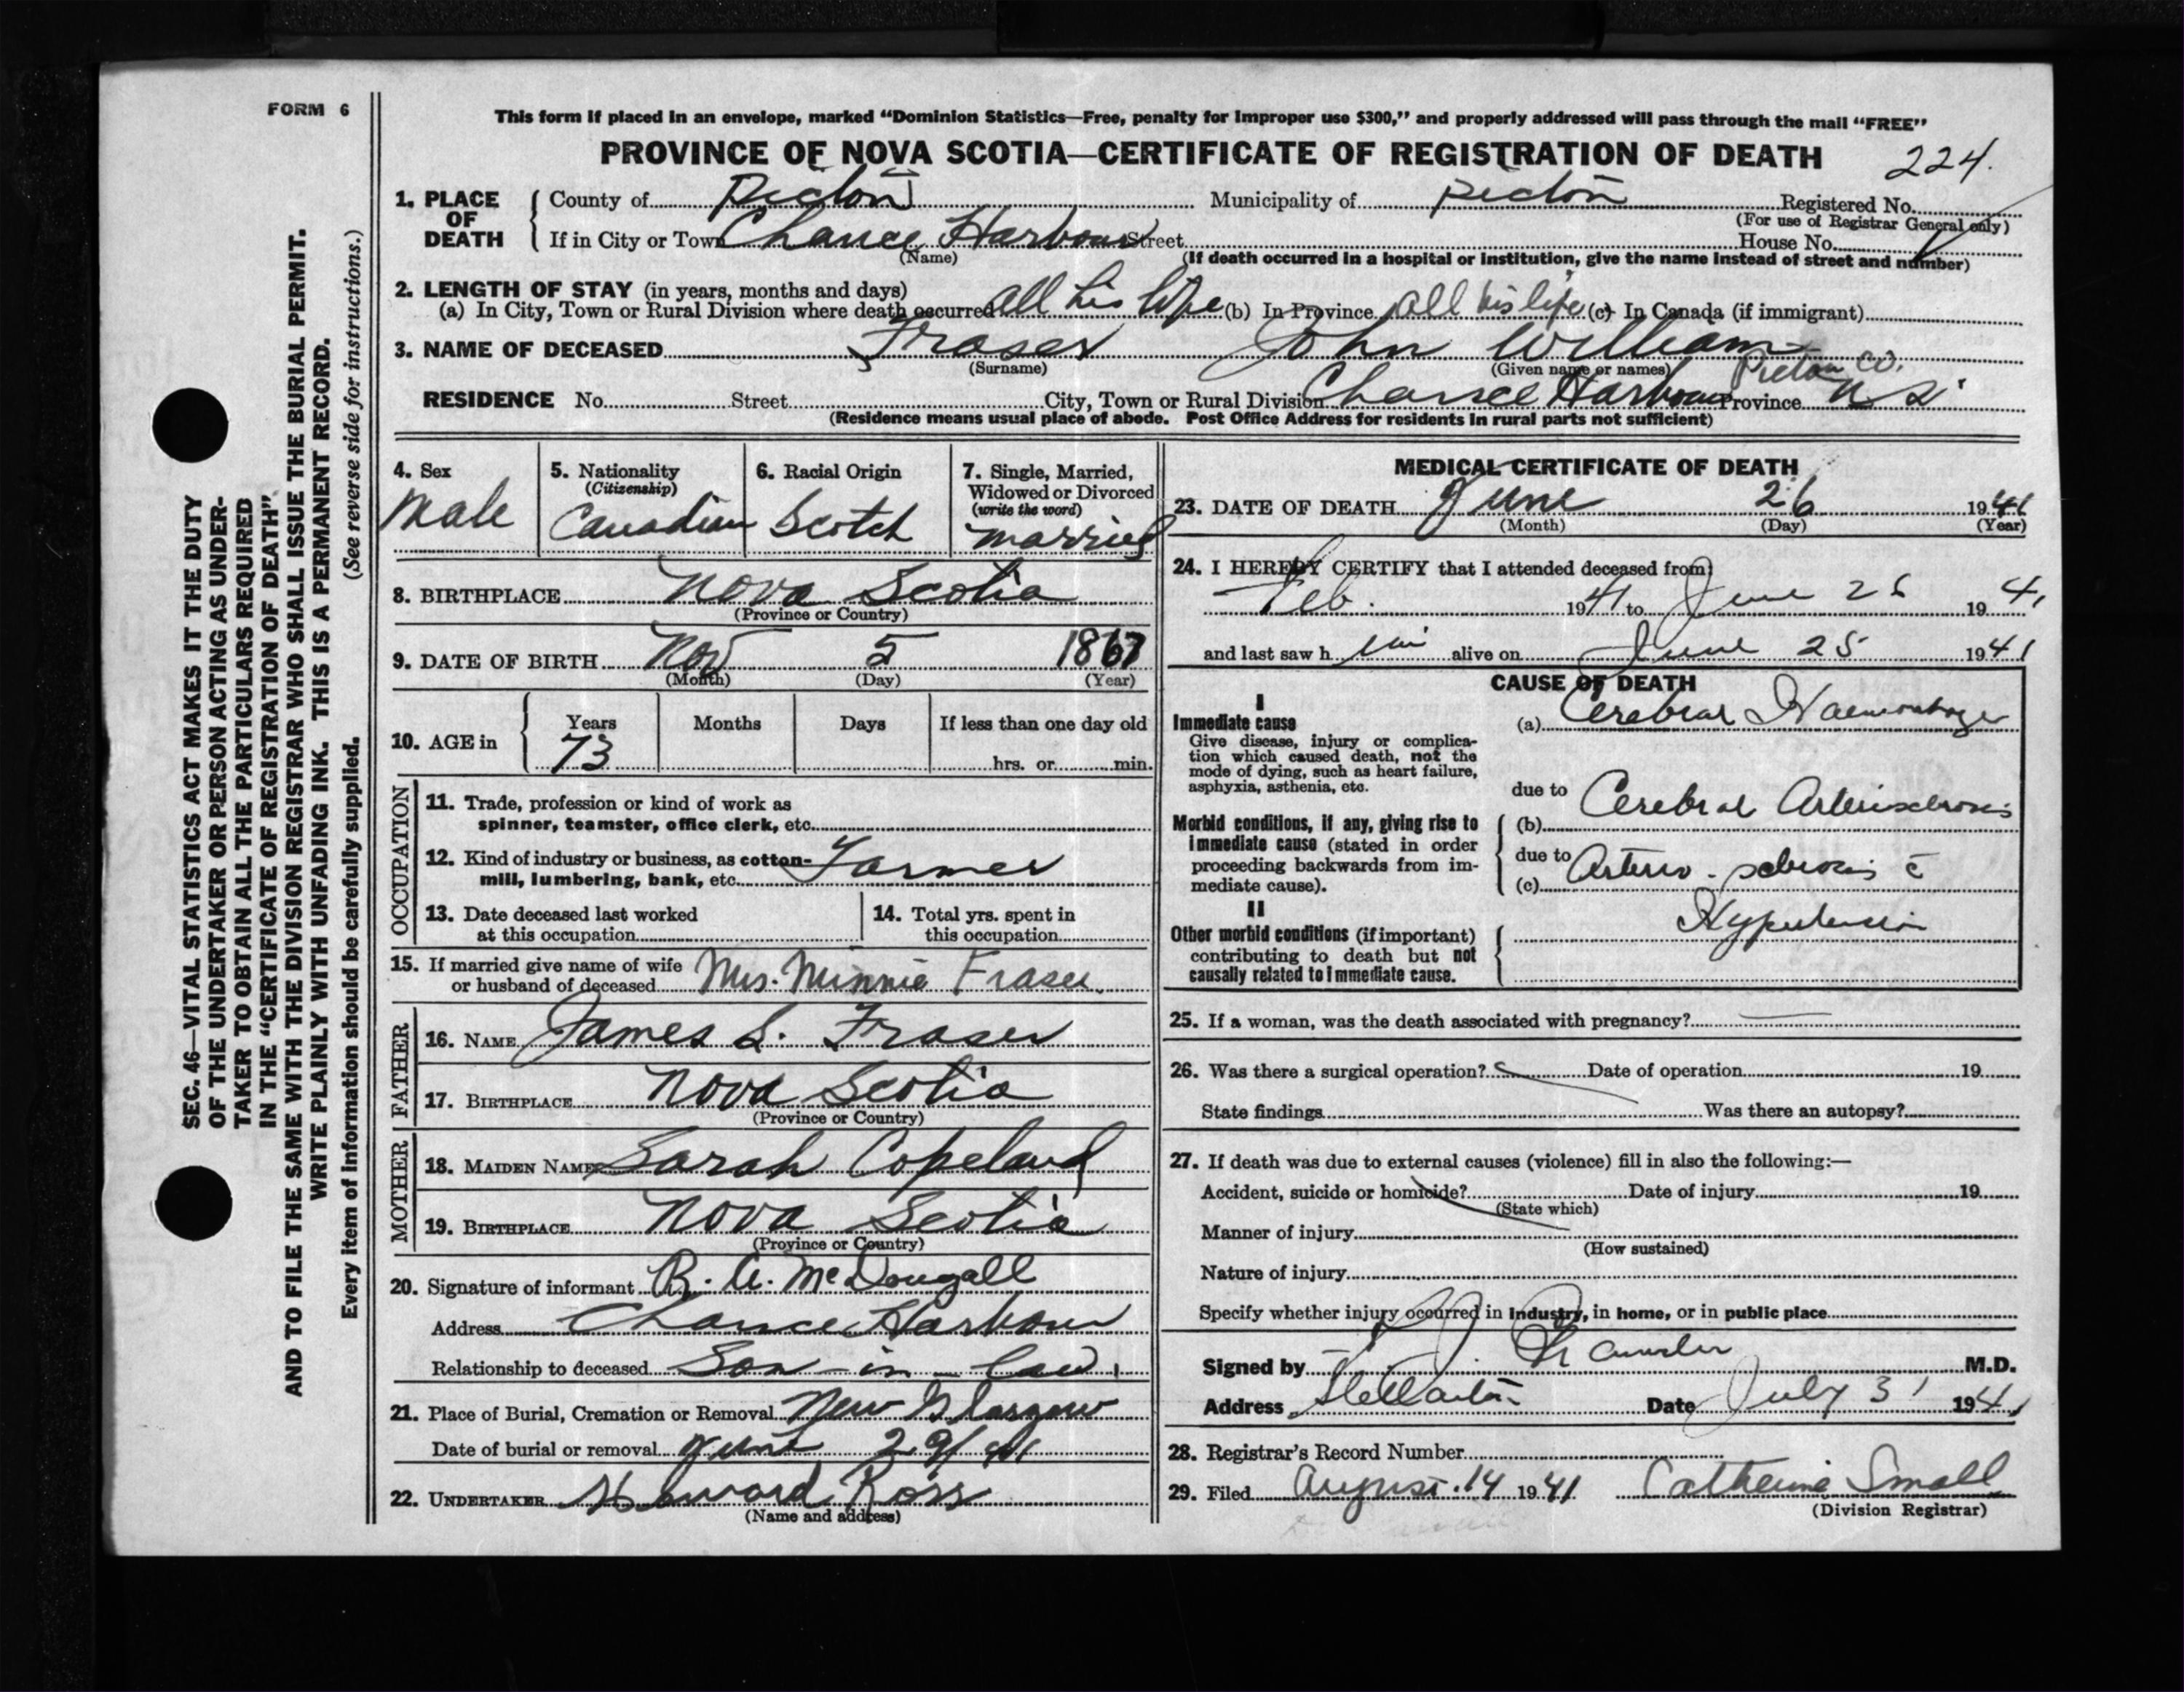 FORM 6
This form if placed in an envelope, marked “Dominion Statistics—Free, penalty for improper use $300,” and properly addressed will pass through the mail “FREE”
PROVINCE OF NOVA SCOTIA—CERTIFICATE OF REGISTRATION OF DEATH 224.
1. PLACE OF DEATH County of Pictou Municipality of Pictou Registered No.
(For use of Registrar General only)
If in City or Town Chance Harbour Street House No.
(Name) (If death occurred in a hospital or institution, give the name instead of street and number)
2. LENGTH OF STAY (in years, months and days)
(a) In City, Town or Rural Division where death occurred all his life (b) In Province all his life (c) In Canada (if immigrant)
3. NAME OF DECEASED Fraser John William
(Surname) (Given name or names)
Pictou Co.
RESIDENCE No. Street City, Town or Rural Division Chance Harbour Province N.S.
(Residence means usual place of abode. Post Office Address for residents in rural parts not sufficient)
4. Sex
Male
5. Nationality
(Citizenship)
Canadian
6. Racial Origin
Scotch
7. Single, Married,
Widowed or Divorced
(write the word)
married
8. BIRTHPLACE Nova Scotia
(Province or Country)
9. DATE OF BIRTH Nov 5 1867
(Month) (Day) (Year)
10. AGE in Years Months Days If less than one day old
73 hrs. or min.
OCCUPATION
11. Trade, profession or kind of work as
spinner, teamster, office clerk, etc.
12. Kind of industry or business, as cotton-
mill, lumbering, bank, etc. Farmer
13. Date deceased last worked
at this occupation
14. Total yrs. spent in
this occupation
15. If married give name of wife
or husband of deceased Mrs. Minnie Fraser.
FATHER
16. NAME James S. Fraser
17. BIRTHPLACE Nova Scotia
(Province or Country)
MOTHER
18. MAIDEN NAME Sarah Copeland
19. BIRTHPLACE Nova Scotia
(Province or Country)
20. Signature of informant R. A. McDougall
Address Chance Harbour
Relationship to deceased Son-in-law
21. Place of Burial, Cremation or Removal New Glasgow
Date of burial or removal June 29/41
22. UNDERTAKER Howard Ross
(Name and address)
MEDICAL CERTIFICATE OF DEATH
23. DATE OF DEATH June 26 1941
(Month) (Day) (Year)
24. I HEREBY CERTIFY that I attended deceased from
Feb. 1941 to June 26 1941
and last saw him alive on June 25 1941
CAUSE OF DEATH
I
Immediate cause
Give disease, injury or complica-
tion which caused death, not the
mode of dying, such as heart failure,
asphyxia, asthenia, etc.
(a) Cerebral Haemorrhage
due to
Morbid conditions, if any, giving rise to
immediate cause (stated in order
proceeding backwards from im-
mediate cause).
(b) Cerebral Arteriosclerosis
due to
(c) Arterio-sclerosis c̄
Hypertension
II
Other morbid conditions (if important)
contributing to death but not
causally related to immediate cause.
25. If a woman, was the death associated with pregnancy?
26. Was there a surgical operation? Date of operation 19
State findings Was there an autopsy?
27. If death was due to external causes (violence) fill in also the following:—
Accident, suicide or homicide? Date of injury 19
(State which)
Manner of injury
(How sustained)
Nature of injury
Specify whether injury occurred in industry, in home, or in public place
Signed by M.D.
Address Stellarton Date July 31 1941
28. Registrar's Record Number
29. Filed August 14 1941 Catherine Small
(Division Registrar)
SEC. 46—VITAL STATISTICS ACT MAKES IT THE DUTY
OF THE UNDERTAKER OR PERSON ACTING AS UNDER-
TAKER TO OBTAIN ALL THE PARTICULARS REQUIRED
IN THE “CERTIFICATE OF REGISTRATION OF DEATH”
AND TO FILE THE SAME WITH THE DIVISION REGISTRAR WHO SHALL ISSUE THE BURIAL PERMIT.
WRITE PLAINLY WITH UNFADING INK. THIS IS A PERMANENT RECORD.
Every item of information should be carefully supplied. (See reverse side for instructions.)